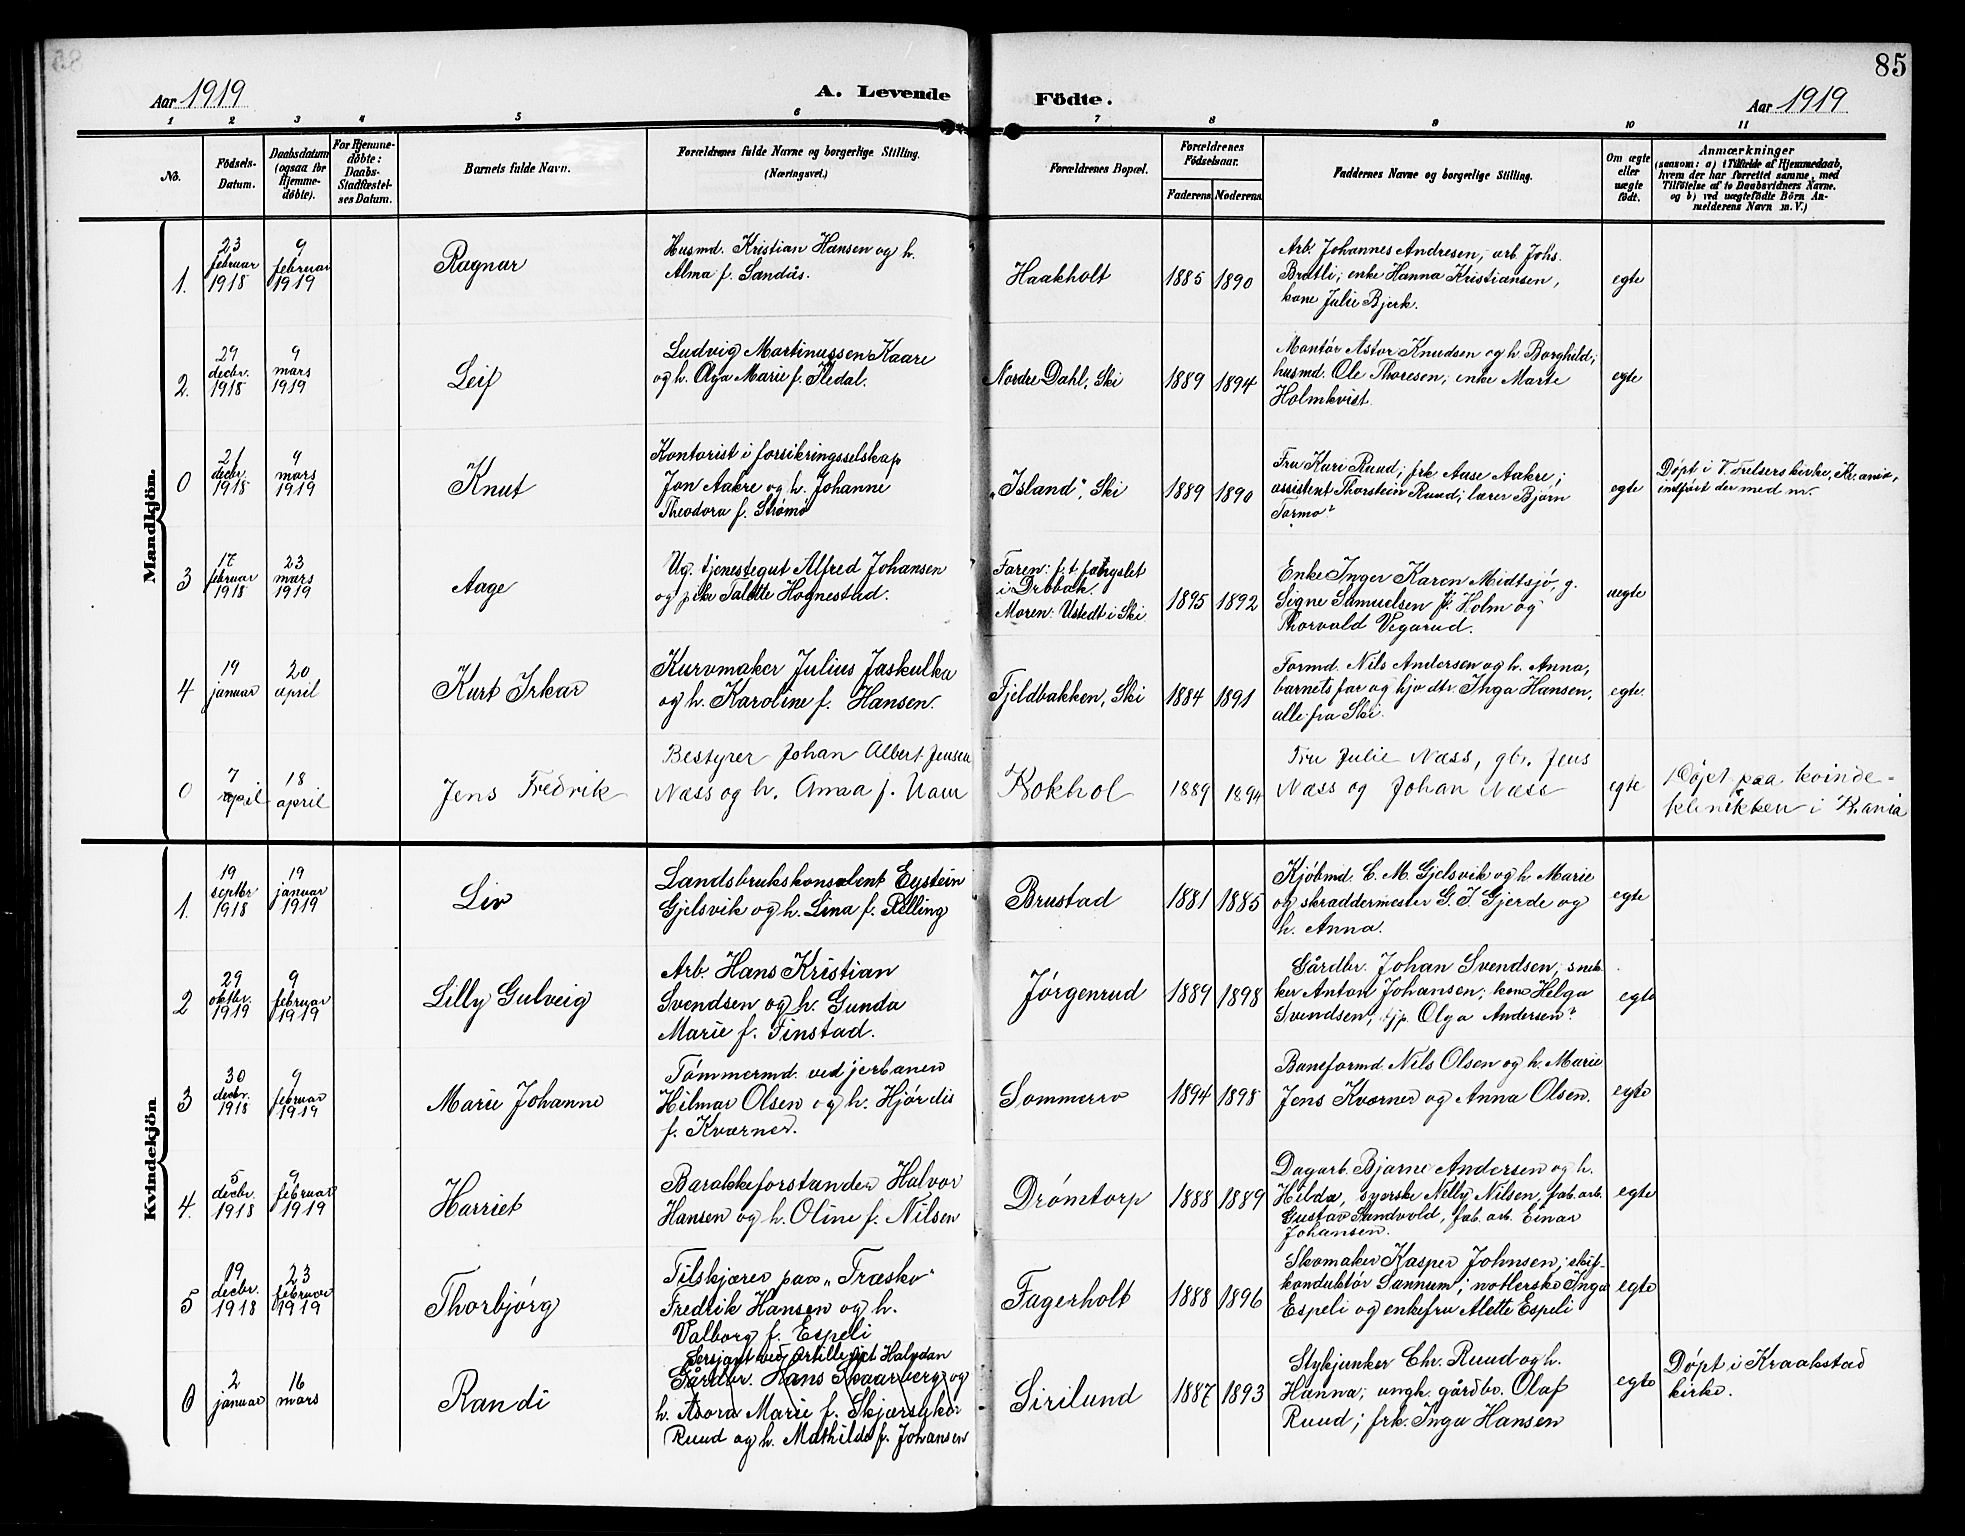 85
Aar 1919
A. Levende Födte.
Aar 1919
1 2 3 4 5 6 7 8 9 10 11
No.
Födsels-
Datum.
Daabsdatum
(ogsaa for
Hjemme-
døbte).
For Hjemme-
døbte:
Daabs-
Stadfæstel-
ses Datum.
Barnets fulde Navn.
Forældrenes fulde Navne og borgerlige Stilling.
(Næringsvei.)
Forældrenes Bopæl.
Forældrenes
Födselsaar.
Faderens Moderens
Faddernes Navne og borgerlige Stilling.
Om ægte
eller
uægte
født.
Anmærkninger
(saasom: a) i Tilfælde af Hjemmedaab,
hvem der har forrettet samme, med
Tilføielse af to Daabsvidners Navne.
og b) ved uægtefødte Börn An-
melderens Navn m. V.)
Mandkjön.
1.
23
februar
1918
9
februar
1919
Ragnar
Husmd. Kristian Hansen og h.
Alma f. Sandås.
Haakholt
1885 1890
Arb. Johannes Andresen; arb. Johs.
Bratli; enke Hanna Kristiansen,
kone Julie Bjerk.
egte
2.
29
decbr.
1918
9
mars
1919
Leif
Ludvig Martinussen Kaare
og h. Olga Marie f. Fledal.
Nordre Dahl, Ski
1889 1894
Montör Astor Knudsen og h. Borghild;
husmd. Ole Thoresen; enke Marte
Holmkvist.
egte
0
21
decbr.
1918
9
mars
1919
Knut
Kontorist i forsikringsselskap
Jon Aakre og h. Johanne
Theodora f. Strömö
"Island", Ski
1889 1890
Fru Kari Ruud; frk. Aase Aakre;
assistent Thorstein Ruud; lærer Bjørn
Tormo?
egte
Døpt i V. Frelsers kirke, Kr.ania,
indført der med nr.
3
17
februar
1918
23
mars
1919
Aage
Ug. tjenestegut Alfred Johansen
og pike Talette Hognestad.
Faren: f.t. fængslet
i Drøbak.
Moren: Ustedt i Ski
1895 1892
Enke Inger Karen Midtsjö, g.
Signe Samuelsen f. Holm og
Thorvald Vegarud.
uegte
4
19
januar
20
april
Kurt Irkar
Kurvmaker Julius Jaskulka
og h. Karoline f. Hansen.
Fjeldbakken, Ski
1884 1891
Formd. Nils Andersen og h. Anna,
barnets far og hjv. dtr. Inga Hansen,
alle fra Ski.
egte.
0
7
april
18
april
Jens Fredrik
Bestyrer Johan Albert Jensen
Næss og h. Anna f. Ham
Kokhol
1889 1894
Fru Julie Næss, gbr. Jens
Næss og Johan Næss
egte
Døpt paa kvinde-
klinikken i Kr.ania
Kvindekjön
1.
19
septbr
1918
19
januar
1919
Liv
Landsbrukskonsulent Eystein
Gjelsvik og h. Lina f. Relling
Brustad
1881 1885
Kjöbmd. C. M. Gjelsvik og h. Marie
og skræddermester G. I. Gjerde og
h. Anna.
egte
2
29
oktbr.
1919
9
februar
1919
Lilly Gulveig
Arb. Hans Kristian
Svendsen og h. Gunda
Marie f. Finstad.
Jørgenrud
1889 1898
Gårdbr. Johan Svendsen; snek-
ker Anton Johansen; kone Helga
Svendsen; tjp. Olga Andersen?
egte
3
30
decbr.
1918
9
februar
1919
Marie Johanne
Tömmermd. ved jerbanen
Hilmar Olsen og h. Hjördis
f. Kværner.
Sommerro
1894 1898
Baneformd. Nils Olsen og h. Marie
Jens Kværner og Anna Olsen.
egte
4.
5
decbr.
1918
9
februar
1919
Harriet
Barakkeforstander Halvor
Hansen og h. Oline f. Nilsen
Drømtorp
1888 1889
Dagarb. Bjarne Andersen og h.
Hilda, syerske Nelly Nilsen, fab. arb.
Gustav Sandvold, fab. arb. Einar
Johansen.
egte
5
19
decbr.
1918
23
februar
1919
Thorbjørg
Tilskjærer paa "Træsko"
Fredrik Hansen og h.
Valborg f. Espeli
Fagerholt
1888 1896
Skomaker Kasper Johnsen; skif-
konduktör Sannum; notlerske Inga
Espeli og enkefru Alette Espeli
egte
0
2
januar
16
mars
Randi
Sersjant ved artilleriet Halvdan
Gårdbr. Hans Skaarberg og
h. Asora Marie f. Skjærslyker
Ruud og h. Mathilde f. Johansen
Sirilund
1887 1893
Stykjunker Chr. Ruud og h.
Hanna; ungk. gårdbr. Olaf
Ruud; frk. Inga Hansen
egte
Døpt i Kraakstad
kirke.